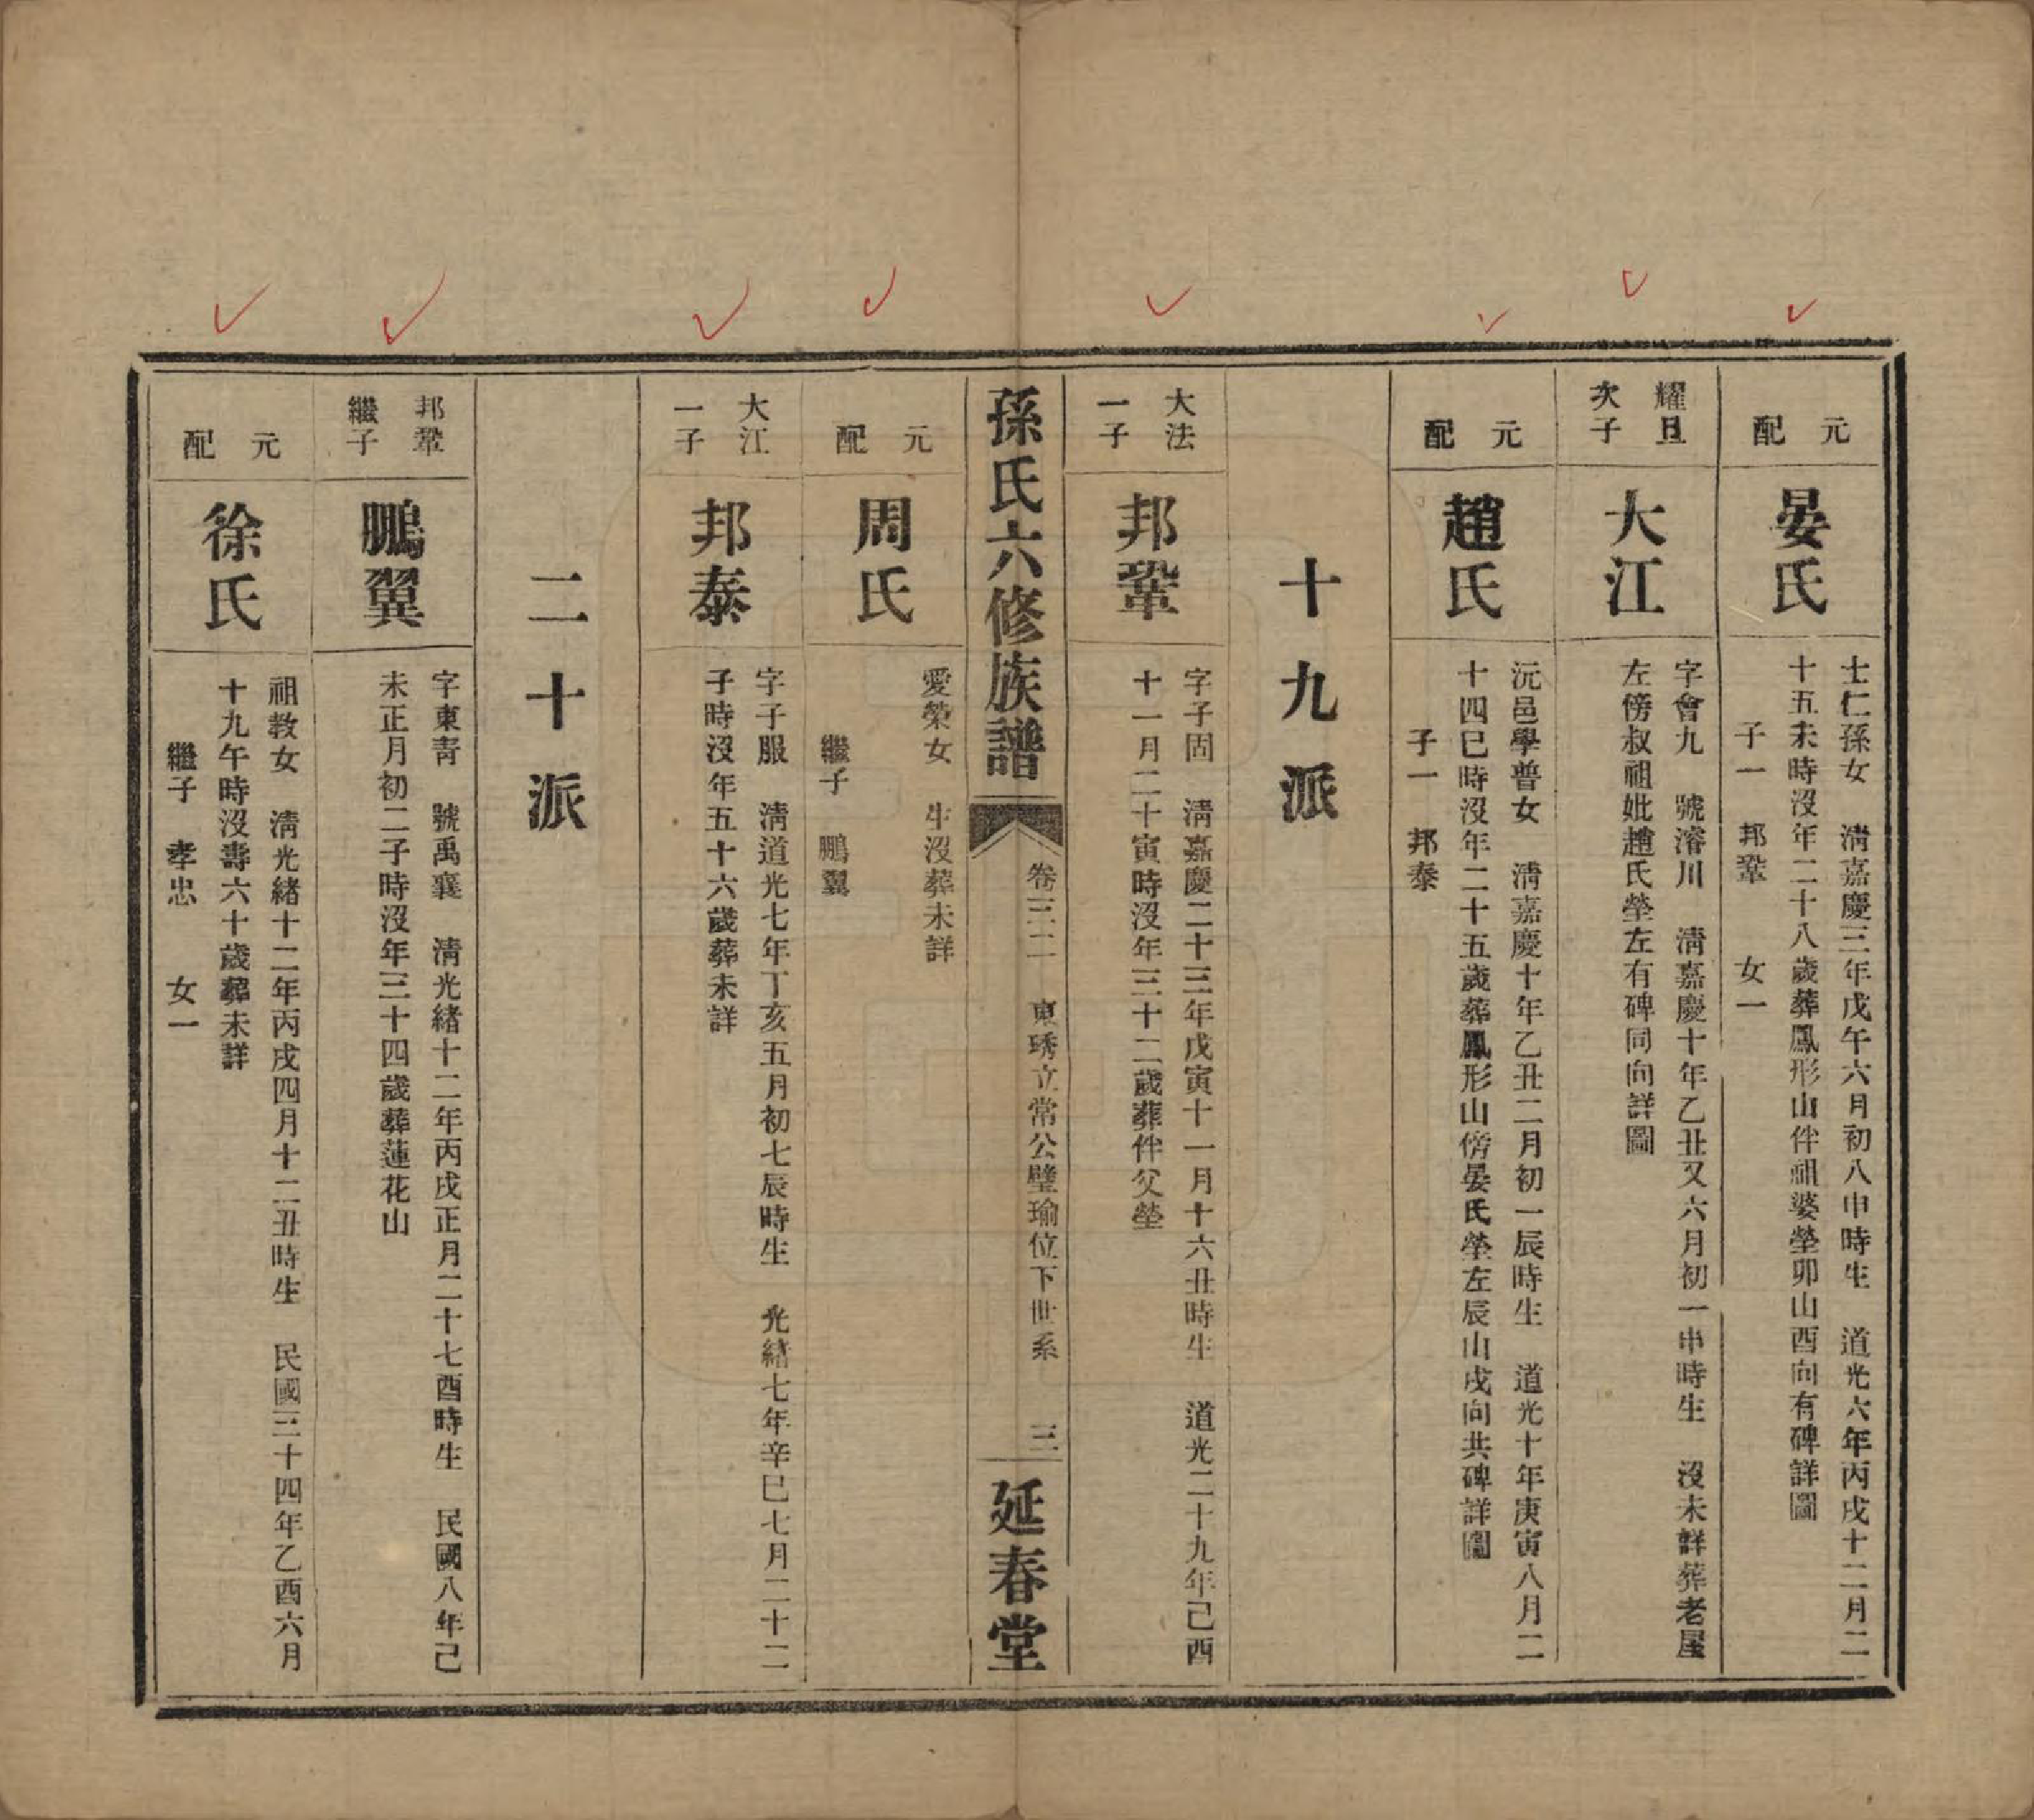 元配
晏氏
士仁孫女　清嘉慶三年戊午六月初八申時生　道光六年丙戌十二月二
十五未時沒年二十八歲葬鳳形山伴祖婆塋卯山酉向有碑詳圖
子一　邦鞏　女一
耀且
次子
大江
字會九　號濬川　清嘉慶十年乙丑又六月初一申時生　沒未詳葬老屋
左傍叔祖妣趙氏塋左有碑同向詳圖
元配
趙氏
沅邑學普女　清嘉慶十年乙丑二月初一辰時生　道光十年庚寅八月二
十四巳時沒年二十五歲葬鳳形山傍晏氏塋左辰山戌向共碑詳圖
子一　邦泰
十九派
大法
一子
邦鞏
字子固　清嘉慶二十三年戊寅十一月十六丑時生　道光二十九年己酉
十一月二十寅時沒年三十二歲葬伴父塋
孫氏六修族譜
卷三二　東琇立常公璧瑜位下世系　三
延春堂
元配
周氏
愛榮女　生沒葬未詳
繼子　鵬翼
大江
一子
邦泰
字子服　清道光七年丁亥五月初七辰時生　光緒七年辛巳七月二十二
子時沒年五十六歲葬未詳
二十派
邦鞏
繼子
鵬翼
字東青　號禹襄　清光緒十二年丙戌正月二十七酉時生　民國八年己
未正月初二子時沒年三十四歲葬蓮花山
元配
徐氏
祖教女　清光緒十二年丙戌四月十二丑時生　民國三十四年乙酉六月
十九午時沒壽六十歲葬未詳
繼子　孝忠　女一